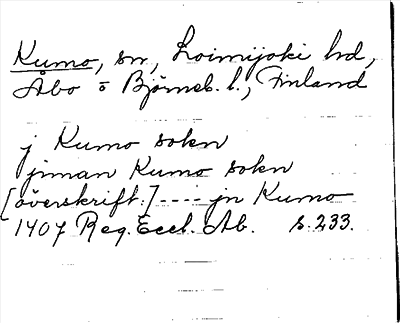 Kumo, sn, Loimijoki hd,
Åbo o Björneb. l., Finland
j Kumo sokn
jnnan Kumo sokn
[överskrift:] ---- jn Kumo
1407 Reg. Eccl. Ab. s. 233.